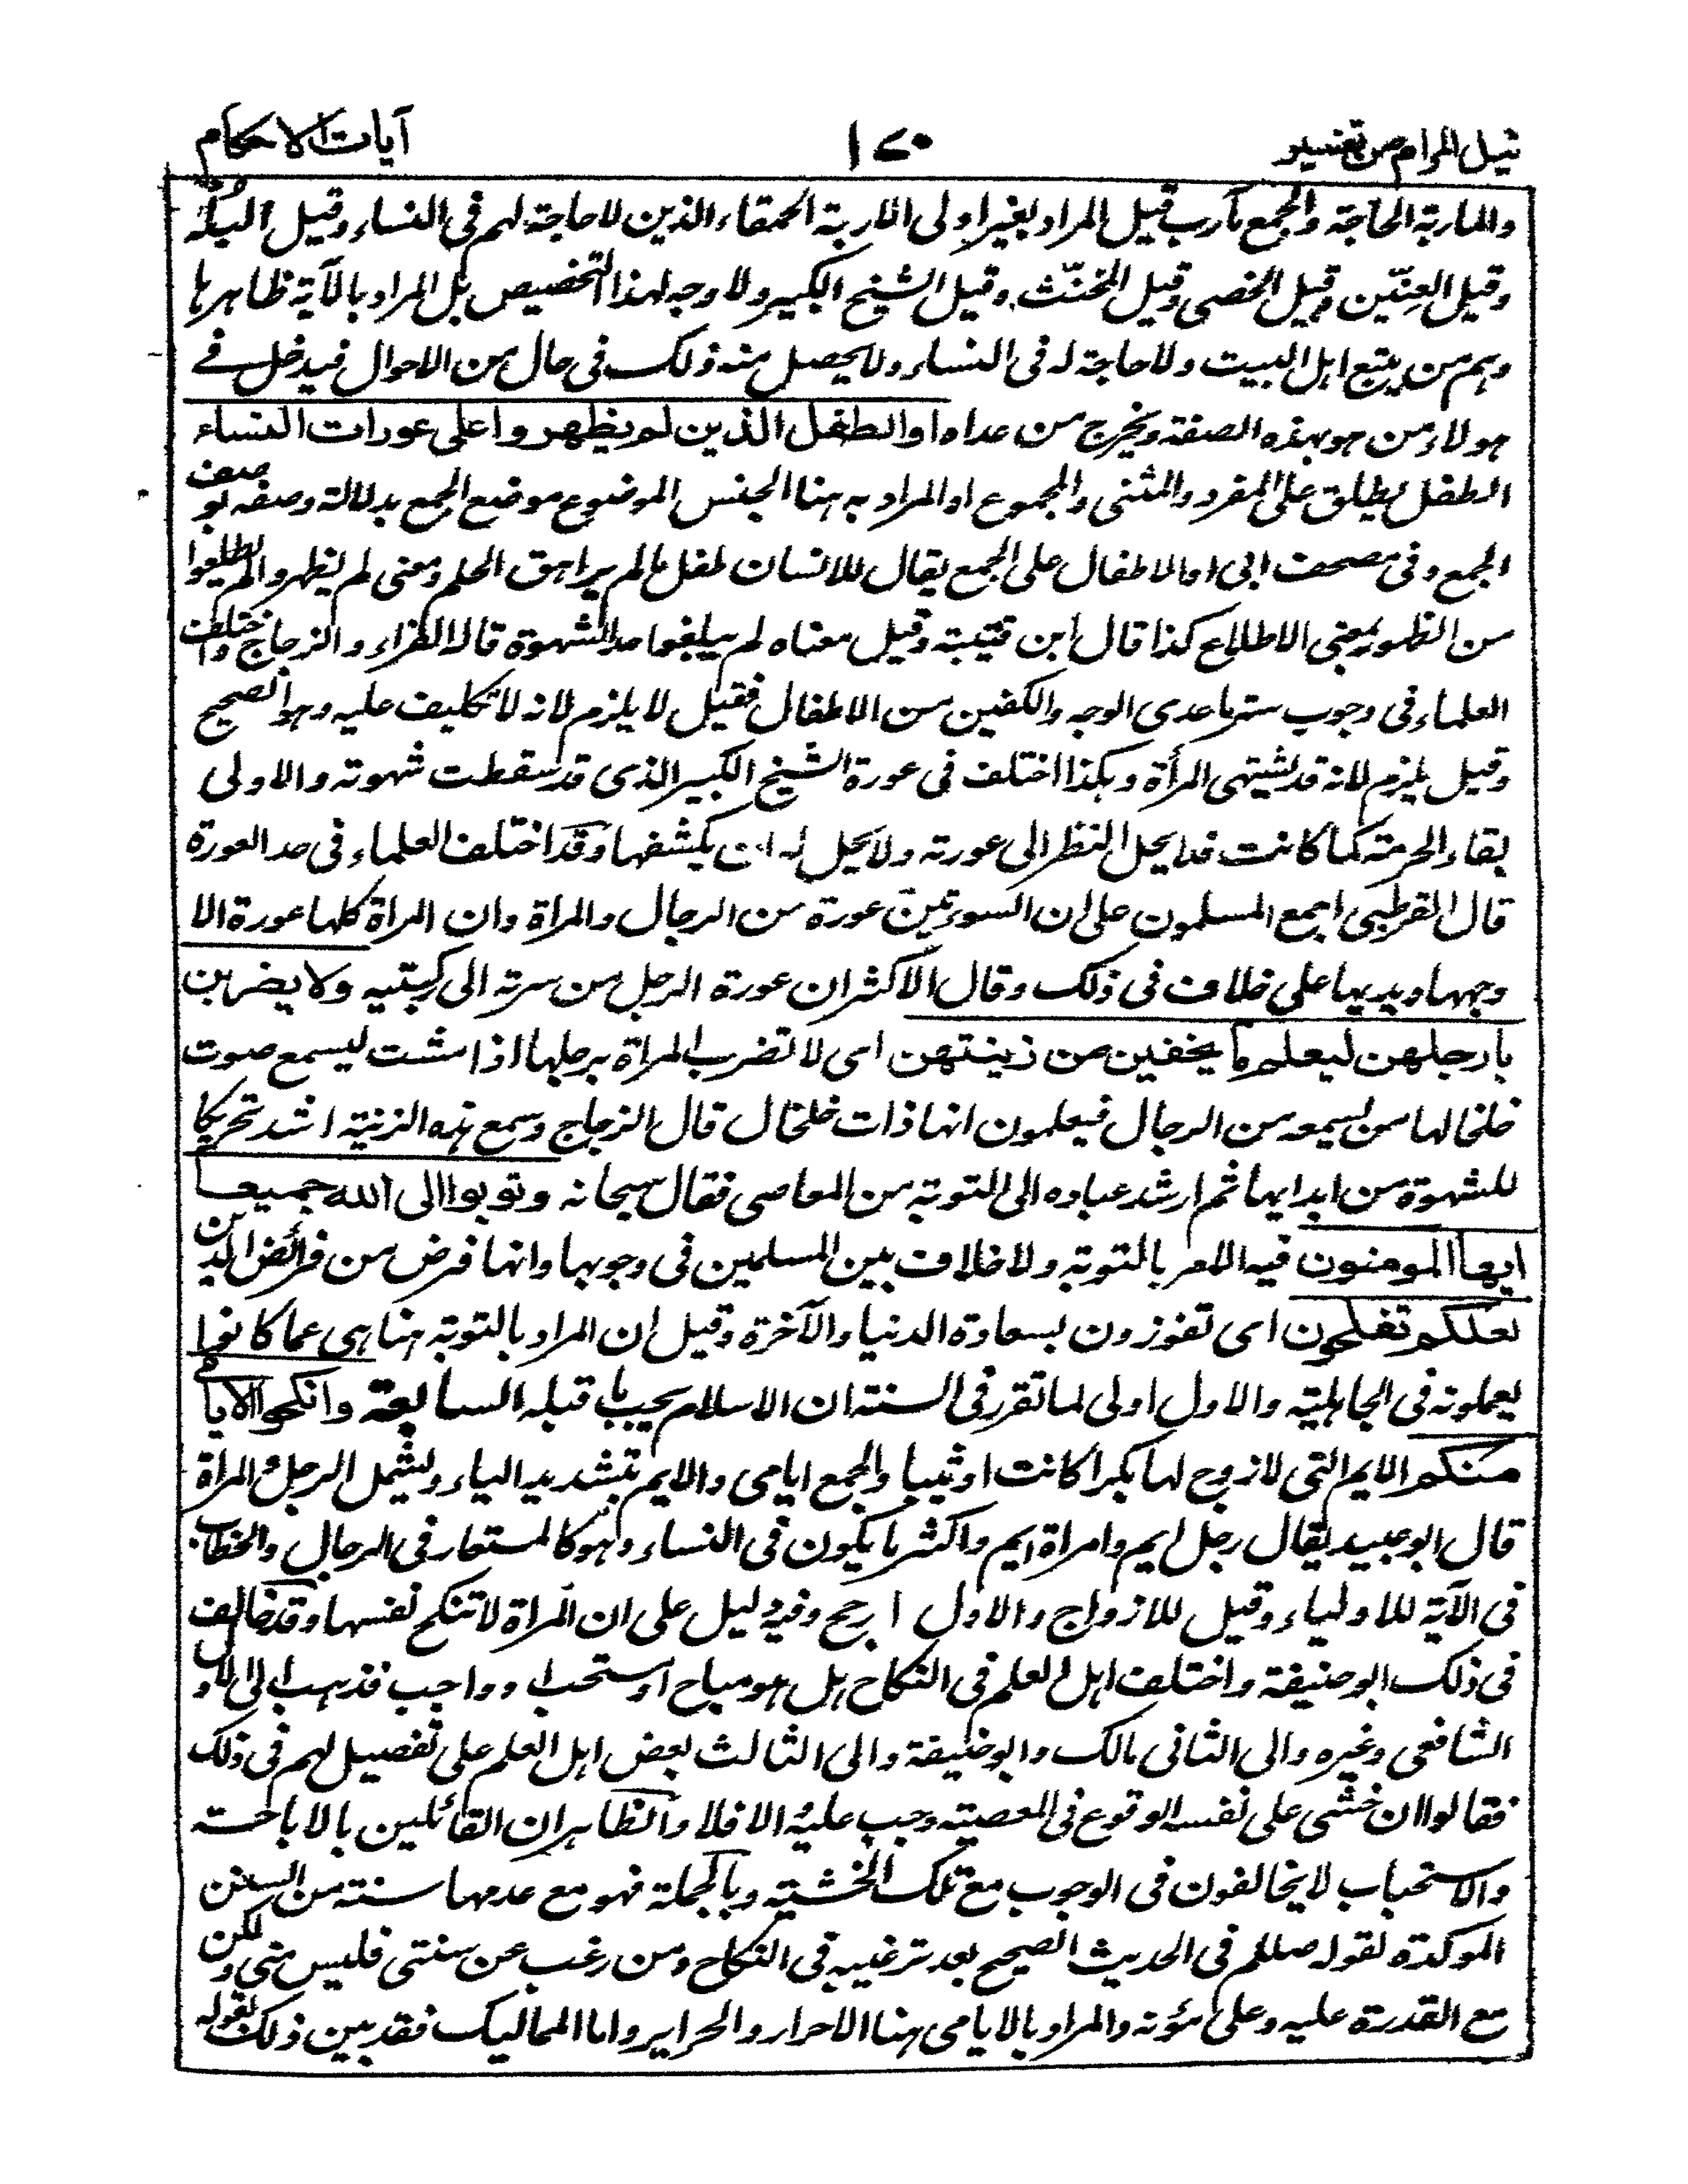 نيل المرام من تفسير
١٧٠
آيات الاحكام
والماربة الحاجة والجمع مآرب قيل المراد بغير اولى الاربة الحمقاء الذين لا حاجة لهم فى النساء وقيل البُلْه
وقيل العِنِّين وقيل الخصى وقيل المخنّث وقيل الشيخ الكبير ولا وجه لهذا التخصيص بل المراد بالآية ظاهرها
وهم من يتبع اهل البيت ولا حاجة له فى النساء ولا يحصل منه ذلك فى حال من الاحوال فيدخل فے
هولاء من هو بهذه الصفة ويخرج من عداه اوالطفل الذين لم يظهروا على عورات النساء
الطفل يطلق على المفرد والمثنى والمجموع او المراد به هنا الجنس الموضوع موضع الجمع بدلالة وصفه بوصف
الجمع وفى مصحف ابى او الاطفال على الجمع يقال للانسان طفل ما لم يراهق الحلم ومعنى لم يظهروا لم يطلعوا
من الظهور بمعنى الاطلاع كذا قال ابن قتيبة وقيل معناه لم يبلغوا حد الشهوة قاله الفراء والزجاج واختلف
العلماء فى وجوب ستر ما عدى الوجه والكفين من الاطفال فقيل لا يلزم لانه لا تكليف عليه وهو الصحيح
وقيل يلزم لانه قد يشتهى المرأة وهكذا اختلف فى عورة الشيخ الكبير الذى قد سقطت شهوته والاولى
بقاء الحرمة كما كانت فلا يحل النظر الى عورته ولا يحل له ان يكشفها وقد اختلف العلماء فى حد العورة
قال القرطبى اجمع المسلمون على ان السوءتين عورة من الرجال والمراة وان المراة كلها عورة الا
وجهها ويديها على خلاف فى ذلك وقال الاكثر ان عورة الرجل من سرته الى ركبتيه ولا يضربن
بارجلهن ليعلم ما يخفين من زينتهن اى لا تضرب المراة برجلها اذا مشت ليسمع صوت
خلخالها من يسمعه من الرجال فيعلمون انها ذات خلخال قال الزجاج وسمع هذه الزينة اشد تحريكا
للشهوة من ابدايها ثم ارشد عباده الى التوبة من المعاصى فقال سبحانه وتوبوا الى الله جميعا
ايها المومنون فيه الامر بالتوبة ولا خلاف بين المسلمين فى وجوبها وانها فرض من فرائض الدين
لعلكم تفلحون اى تفوزون بسعادة الدنيا والآخرة وقيل ان المراد بالتوبة هنا هى عما كانوا
يعملونه فى الجاهلية والاول اولى لما تقرر فى السنة ان الاسلام يجب ما قبله السابعة وانكحوا الايامى
منكم الايم التى لا زوج لها بكرا كانت او ثيبا والجمع ايامى والايم بتشديد الياء ويشمل الرجل والمراة
قال ابو عبيد يقال رجل ايم وامراة ايم واكثر ما يكون فى النساء وهو كالمستعار فى الرجال والخطاب
فى الآية للاولياء وقيل للازواج والاول ارجح وفيه دليل على ان المراة لا تنكح نفسها وقد خالف
فى ذلك ابو حنيفة واختلف اهل العلم فى النكاح هل هو مباح او مستحب او واجب فذهب الى الاول
الشافعى وغيره والى الثانى مالك وابو حنيفة والى الثالث بعض اهل العلم على تفصيل لهم فى ذلك
فقالوا ان خشى على نفسه الوقوع فى المعصية وجب عليه والا فلا والظاهر ان القائلين بالاباحة
والاستحباب لا يخالفون فى الوجوب مع تلك الخشية وبالجملة فهو مع عدمها سنة من السنن
الموكدة لقوله صللم فى الحديث الصحيح بعد ترغيبه فى النكاح ومن رغب عن سنتى فليس منى ولكن
مع القدرة عليه وعلى مؤنه والمراد بالايامى هنا الاحرار والحراير واما المماليك فقد بين ذلك بقوله